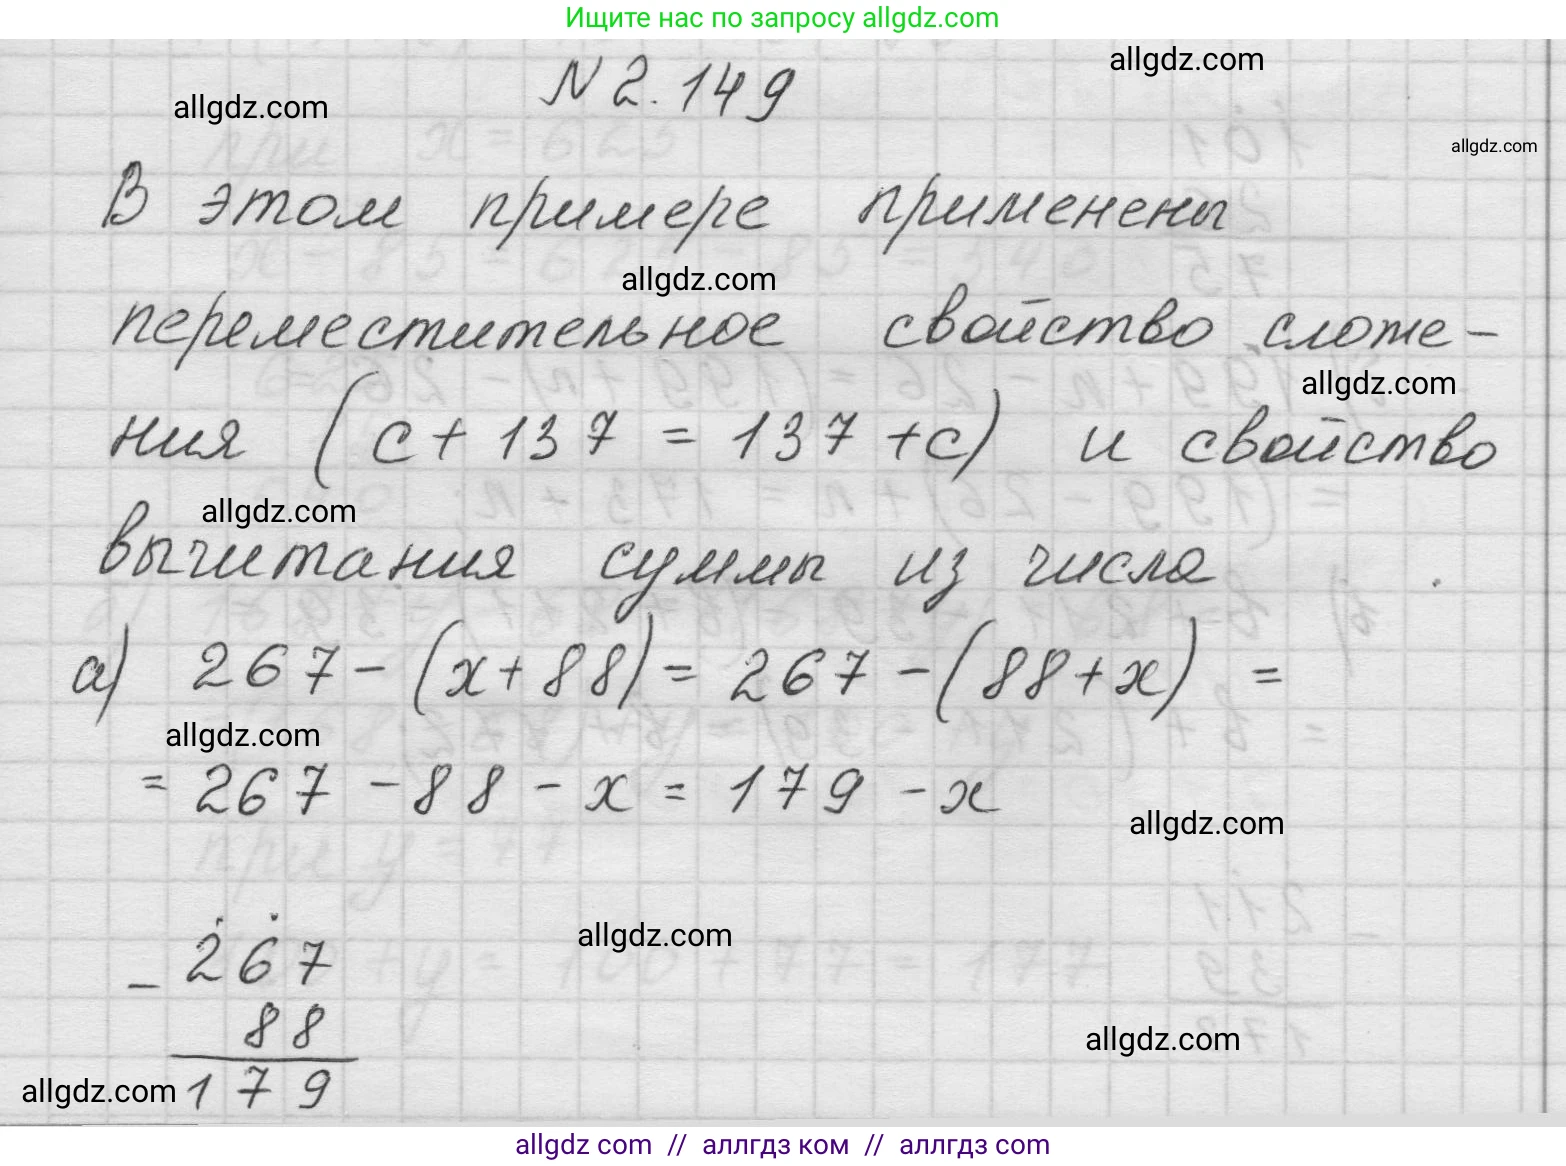 Ищите нас по запросу allgdz.com
N 2.149
allgdz.com
allgdz.com
allgdz.com
В этом примере применены
allgdz.com
переместительное свойство сложе-
allgdz.com
ния (с + 137 = 137 + с) и свойство
allgdz.com
вычитания суммы из числа
а) 267 - (х + 88) = 267 - (88 + х) =
allgdz.com
= 267 - 88 - х = 179 - х
allgdz.com
allgdz.com
- 267
88
allgdz.com
allgdz.com
179
allgdz com // аллгдз ком // аллгдз com